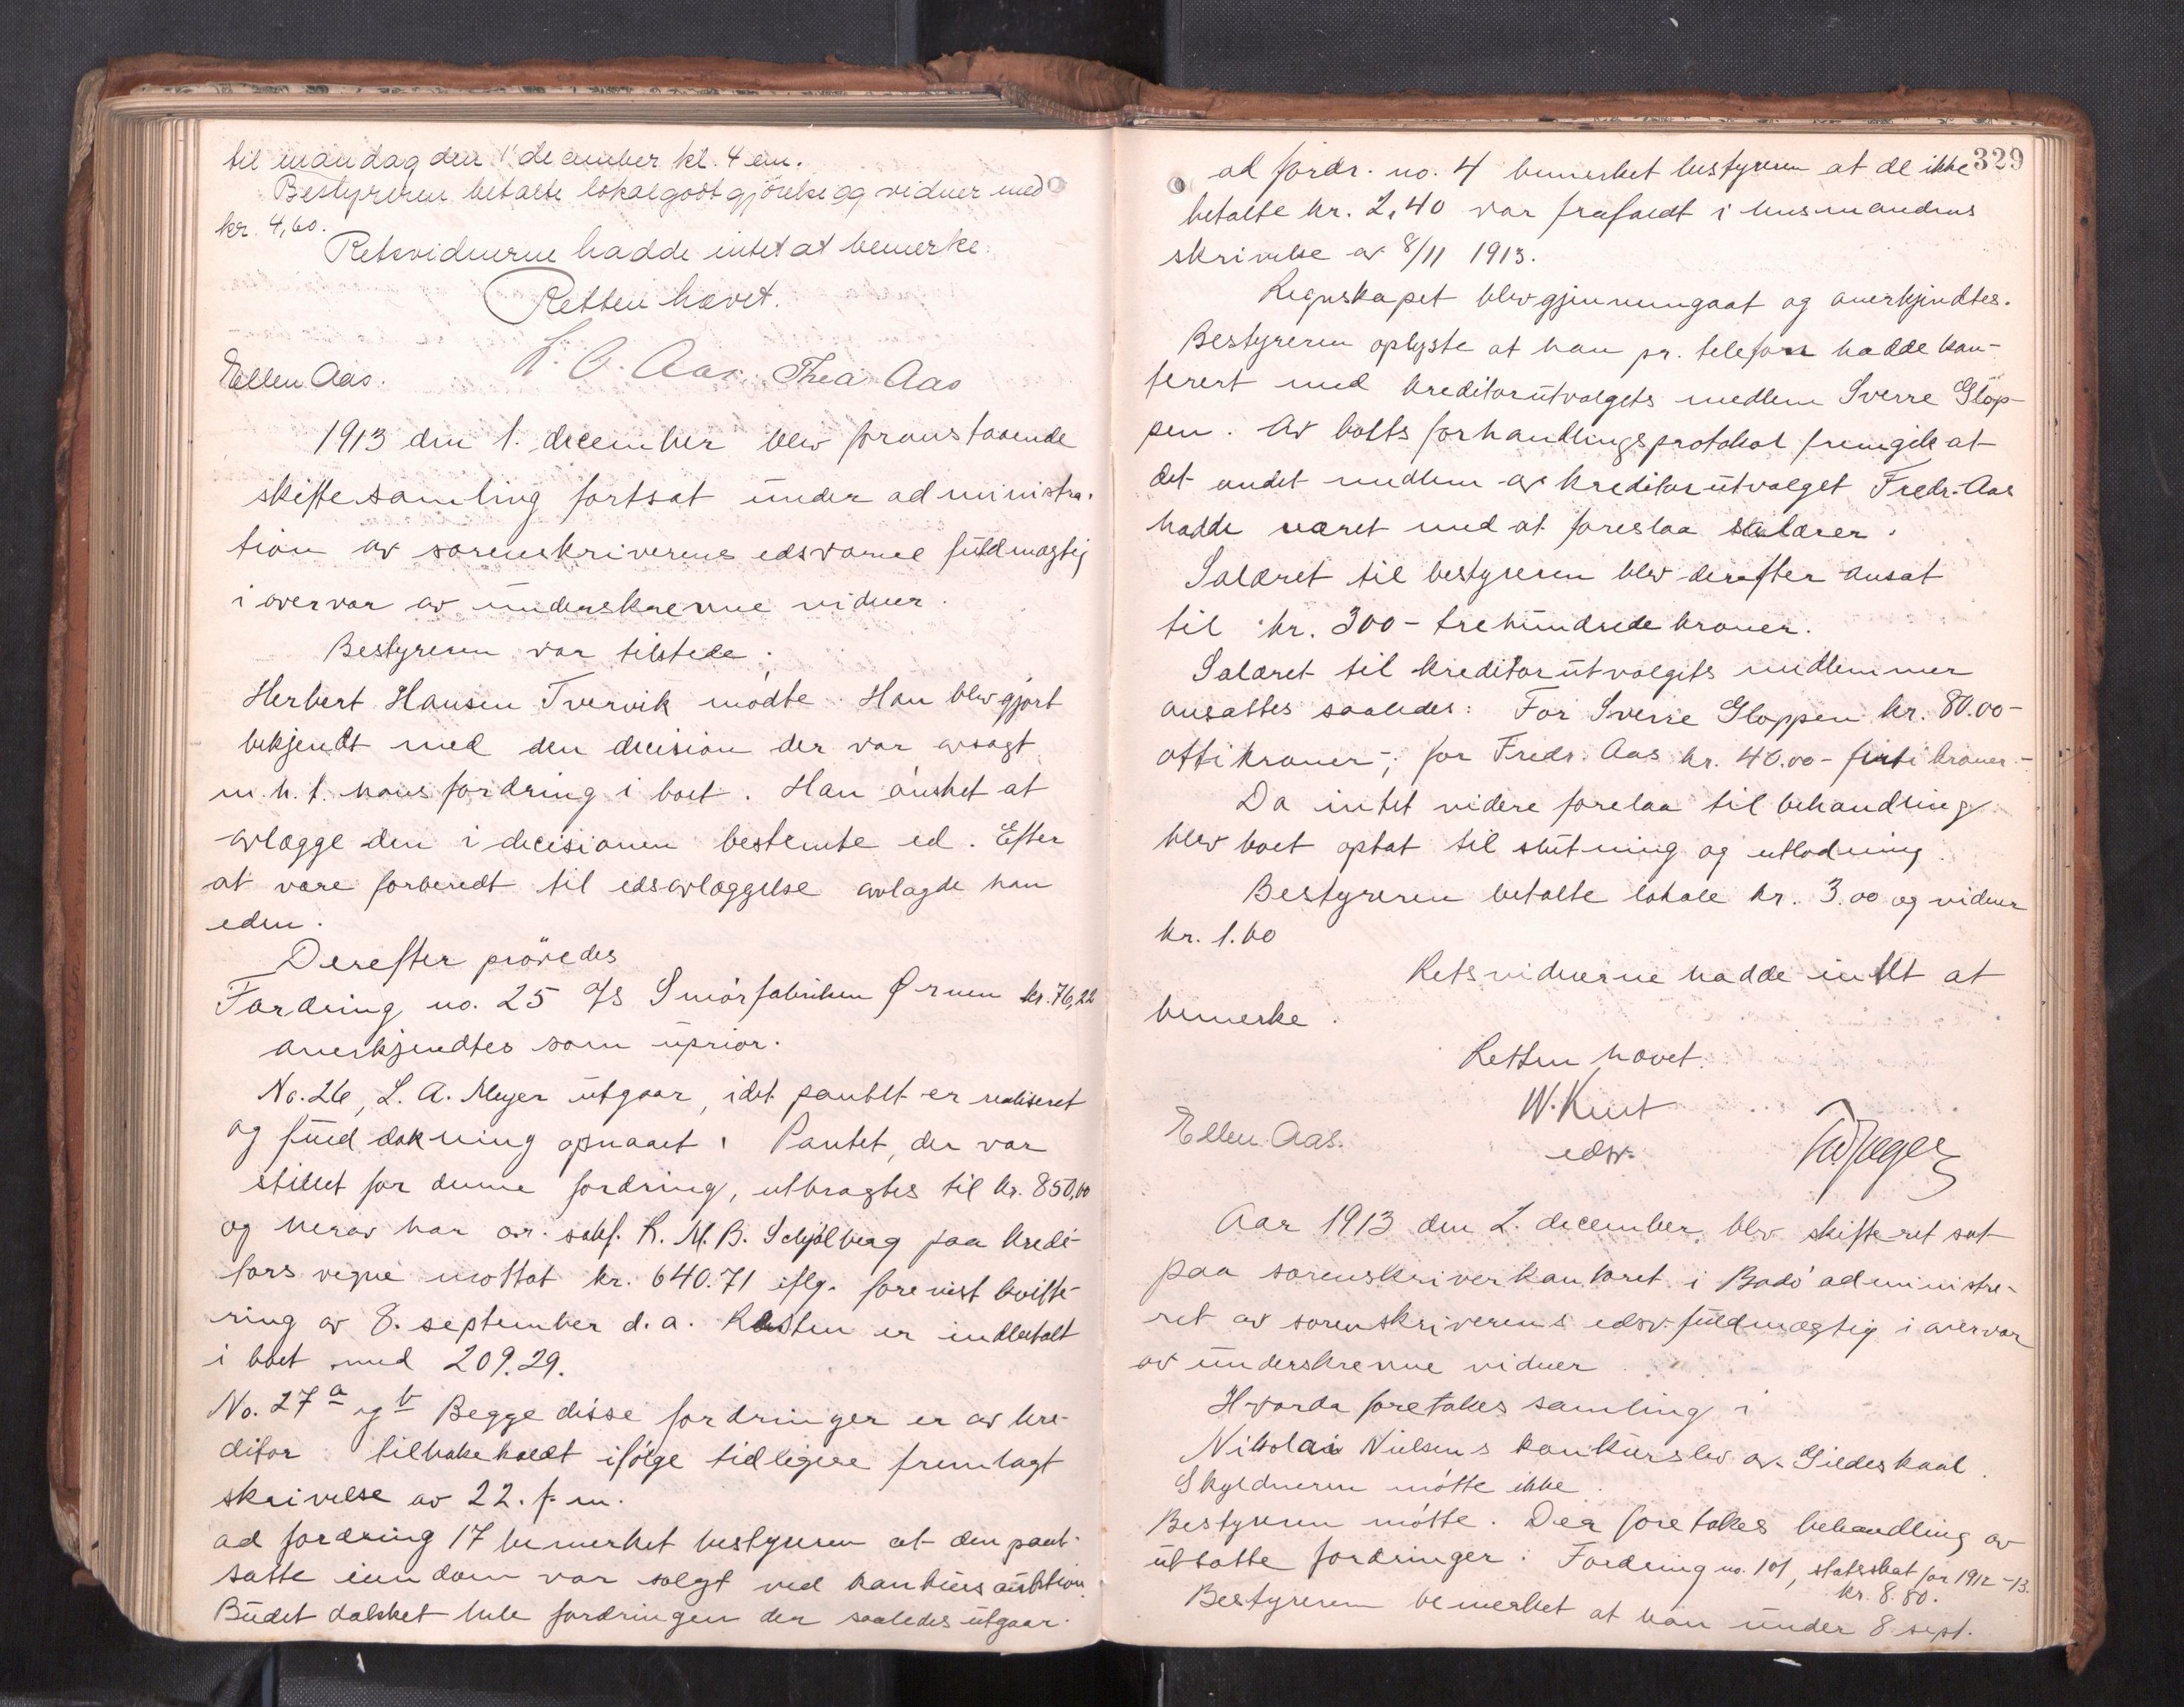 til mandag den 1' december kl. 4 em.
Bestyreren betalte lokalgodtgjörelse og vidner med
kr. 4,60.
Retsvidnerne hadde intet at bemerke.
Retten hævet.
Ellen Aas. L. O. Aas. Thea Aas
1913 den 1. december blev foranstaaende
skiftesamling fortsat under administra-
tion av sorenskriverens edsvorne fuldmægtig
i overvær av underskrevne vidner.
Bestyreren var tilstede.
Herbert Hansen Tvervik mødte. Han blev gjort
bekjendt med den decision der var avsagt
m.h.t. hans fordring i boet. Han ønsket at
avlægge den i decisionen bestemte ed. Efter
at være forberedt til edsavlæggelse avlagde han
eden.
Derefter prövedes
Fordring no. 25 A/S Smörfabriken Ørnen kr. 76,22
anerkjendtes som uprior.
No. 26, L. A. Meyer utgaar, idet pantet er realiseret
og fuld dækning opnaaet. Pantet, der var
stillet for denne fordring, utbragtes til kr. 850,00
og herav har or. sakf. R. M. B. Schjölberg paa kredi-
tors vegne mottat kr. 640.71 iflg. forevist kvitte-
ring av 8. september d.a. Resten er indbetalt
i boet med 209.29.
No. 27 a og b Begge disse fordringer er av kre-
ditor tilbakekaldt ifølge tidligere fremlagt
skrivelse av 22. f.m.
ad fordring 17 bemerket bestyreren at den pant-
satte eiendom var solgt ved konkursauktion.
Budet dækket hele fordringen der saaledes utgaar.
329
ad fordr. no. 4 bemerket bestyreren at de ikke
betalte kr. 2,40 var frafaldt i lensmandens
skrivelse av 8/11 1913.
Regnskapet blev gjennemgaat og anerkjendtes.
Bestyreren oplyste at han pr. telefon hadde kon-
ferert med kreditorutvalgets medlem Sverre Glop-
pen. Av boets forhandlingsprotokol fremgik at
det andet medlem av kreditorutvalget Fredr. Aas
hadde været med at foreslaa salærer.
Salæret til bestyreren blev derefter ansat
til kr. 300 - trehundrede kroner.
Salæret til kreditorutvalgets medlemmer
ansattes saaledes: For Sverre Gloppen kr. 80.00 -
otti kroner -; for Fredr. Aas kr. 40.00 - firti kroner. -
Da intet videre forelaa til behandling
blev boet optat til slutning og utlodning.
Bestyreren betalte lokale kr. 3.00 og vidner
kr. 1.60
Retsvidnerne hadde intet at
bemerke.
Retten hævet.
W. Kint
Ellen Aas. edsv.
Aar 1913 den 2. december blev skifteret sat
paa sorenskriverkontoret i Bodö administre-
ret av sorenskriverens edsv. fuldmægtig i overvær
av underskrevne vidner.
Hvorda foretakes samling i
Nikolai Nielsens konkursbo av Gildeskaal.
Skyldneren mötte ikke.
Bestyreren mötte. Der foretakes behandling av
utsatte fordringer: Fordring no. 101, statsskat for 1912-13.
kr. 8.80.
Bestyreren bemerket at han under 8 sept.